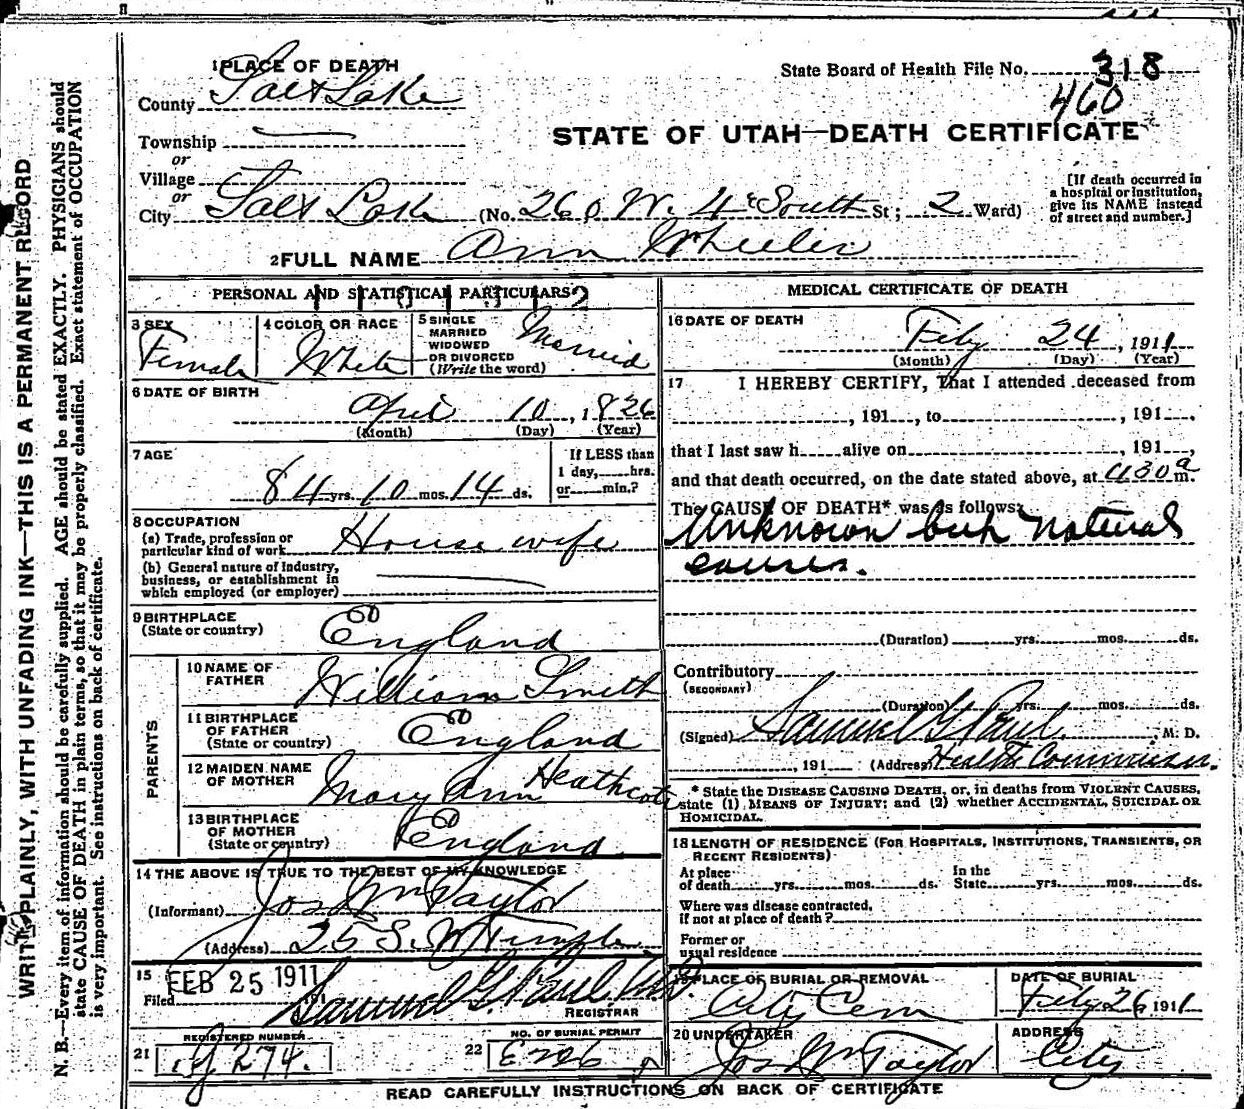 WRITE PLAINLY, WITH UNFADING INK—THIS IS A PERMANENT RECORD
N. B.—Every item of information should be carefully supplied. AGE should be stated EXACTLY. PHYSICIANS should
state CAUSE OF DEATH in plain terms, so that it may be properly classified. Exact statement of OCCUPATION
is very important. See instructions on back of certificate.
1 PLACE OF DEATH
County Salt Lake
Township
or
Village
or
City Salt Lake (No. 260 W. 4 South St; 2 Ward)
State Board of Health File No. 318
460
STATE OF UTAH—DEATH CERTIFICATE
[If death occurred in
a hospital or institution,
give its NAME instead
of street and number.]
2 FULL NAME Ann Wheeler
PERSONAL AND STATISTICAL PARTICULARS
3 SEX
Female
4 COLOR OR RACE
White
5 SINGLE
MARRIED
WIDOWED
OR DIVORCED
(Write the word)
Married
6 DATE OF BIRTH
April 10, 1826
(Month) (Day) (Year)
7 AGE
84 yrs. 10 mos. 14 ds.
If LESS than
1 day, hrs.
or min.?
8 OCCUPATION
(a) Trade, profession or
particular kind of work House wife
(b) General nature of industry,
business, or establishment in
which employed (or employer)
9 BIRTHPLACE
(State or country)
England
PARENTS
10 NAME OF
FATHER
William Smith
11 BIRTHPLACE
OF FATHER
(State or country)
England
12 MAIDEN NAME
OF MOTHER
Mary Ann Heathcote
13 BIRTHPLACE
OF MOTHER
(State or country)
England
14 THE ABOVE IS TRUE TO THE BEST OF MY KNOWLEDGE
(Informant) Jos Wm Taylor
(Address) 25 S. W Temple
15
Filed FEB 25 1911 Samuel G. Paul, M.D.
REGISTRAR
REGISTERED NUMBER
21 274.
NO. OF BURIAL PERMIT
22 E226
MEDICAL CERTIFICATE OF DEATH
16 DATE OF DEATH
Feby 24, 1911
(Month) (Day) (Year)
17 I HEREBY CERTIFY, That I attended deceased from
, 191 , to , 191 ,
that I last saw h alive on , 191 ,
and that death occurred, on the date stated above, at 430 a m.
The CAUSE OF DEATH* was as follows:
Unknown but natural
causes.
(Duration) yrs. mos. ds.
Contributory
(SECONDARY)
(Duration) yrs. mos. ds.
(Signed) Samuel G. Paul, M. D.
, 191 (Address) Health Commissioner.
* State the DISEASE CAUSING DEATH, or, in deaths from VIOLENT CAUSES,
state (1) MEANS OF INJURY; and (2) whether ACCIDENTAL, SUICIDAL OR
HOMICIDAL.
18 LENGTH OF RESIDENCE (FOR HOSPITALS, INSTITUTIONS, TRANSIENTS, OR
RECENT RESIDENTS)
At place
of death yrs. mos. ds.
In the
State yrs. mos. ds.
Where was disease contracted,
if not at place of death?
Former or
usual residence
19 PLACE OF BURIAL OR REMOVAL
City Cem
DATE OF BURIAL
Feby 26 1911
20 UNDERTAKER
Jos Wm Taylor
ADDRESS
City
READ CAREFULLY INSTRUCTIONS ON BACK OF CERTIFICATE